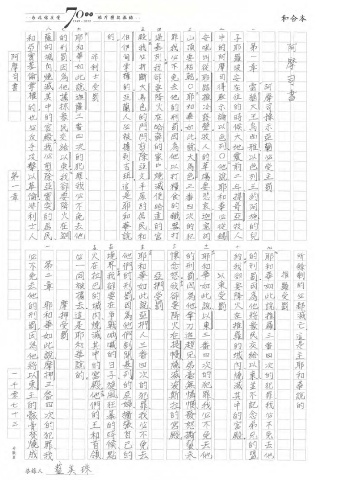 和合本
7000
阿摩司書
阿摩司預示亞蘭必受主罰
第一章 當猶大王烏西雅以色列王約阿施的兒
子耶羅波安在位的時候大地震前二年提哥亞牧人
中的阿摩司得默示論以色列○他說耶和華必從錫
安吼叫從耶路撒冷發聲牧人的草場要悲哀迦密的
山頂要枯乾○耶和華如此說大馬色三番四次的犯
罪我必不免去他的刑罰因為他以打糧食的鐵器打
過基列我卻要降火在哈薛的家中燒滅便哈達的宮
殿我必折斷大馬色的門閂剪除亞文平原的居民和
伯伊甸掌權的亞蘭人必被擄到吉珥這是耶和華說的
非利士受罰
耶和華如此說迦薩三番四次的犯罪我必不免去他
的刑罰因為他擄掠眾民交給以東我卻要降火在迦
薩的城內燒滅其中的宮殿我必剪除亞實突的居民
和亞實基倫掌權的也必反手攻擊以革倫非利士人
所餘剩的必都滅亡這是主耶和華說的
推羅受罰
耶和華如此說推羅三番四次的犯罪我必不免去他
的刑罰因為他將眾民交給以東並不記念弟兄的盟
約我卻要降火在推羅的城內燒滅其中的宮殿
以東受罰
耶和華如此說以東三番四次的犯罪我必不免去他
的刑罰因為他拿刀追趕兄弟毫無憐憫發怒撕裂永
懷忿怒我卻要降火在提幔燒滅波斯拉的宮殿
亞捫受罰
耶和華如此說亞捫人三番四次的犯罪我必不免去
他們的刑罰因為他們剖開基列的孕婦擴張自己的
境界我卻要在爭戰吶喊的日子旋風狂暴的時候點
火在拉巴的城內燒滅其中的宮殿他們的王和首領
必一同被擄去這是耶和華說的
摩押受罰
第二章 耶和華如此說摩押三番四次的犯罪我
必不免去他的刑罰因為他將以東王的骸骨焚燒成
阿摩司書
第一章
一千零七十二
謄錄人 藍美珠